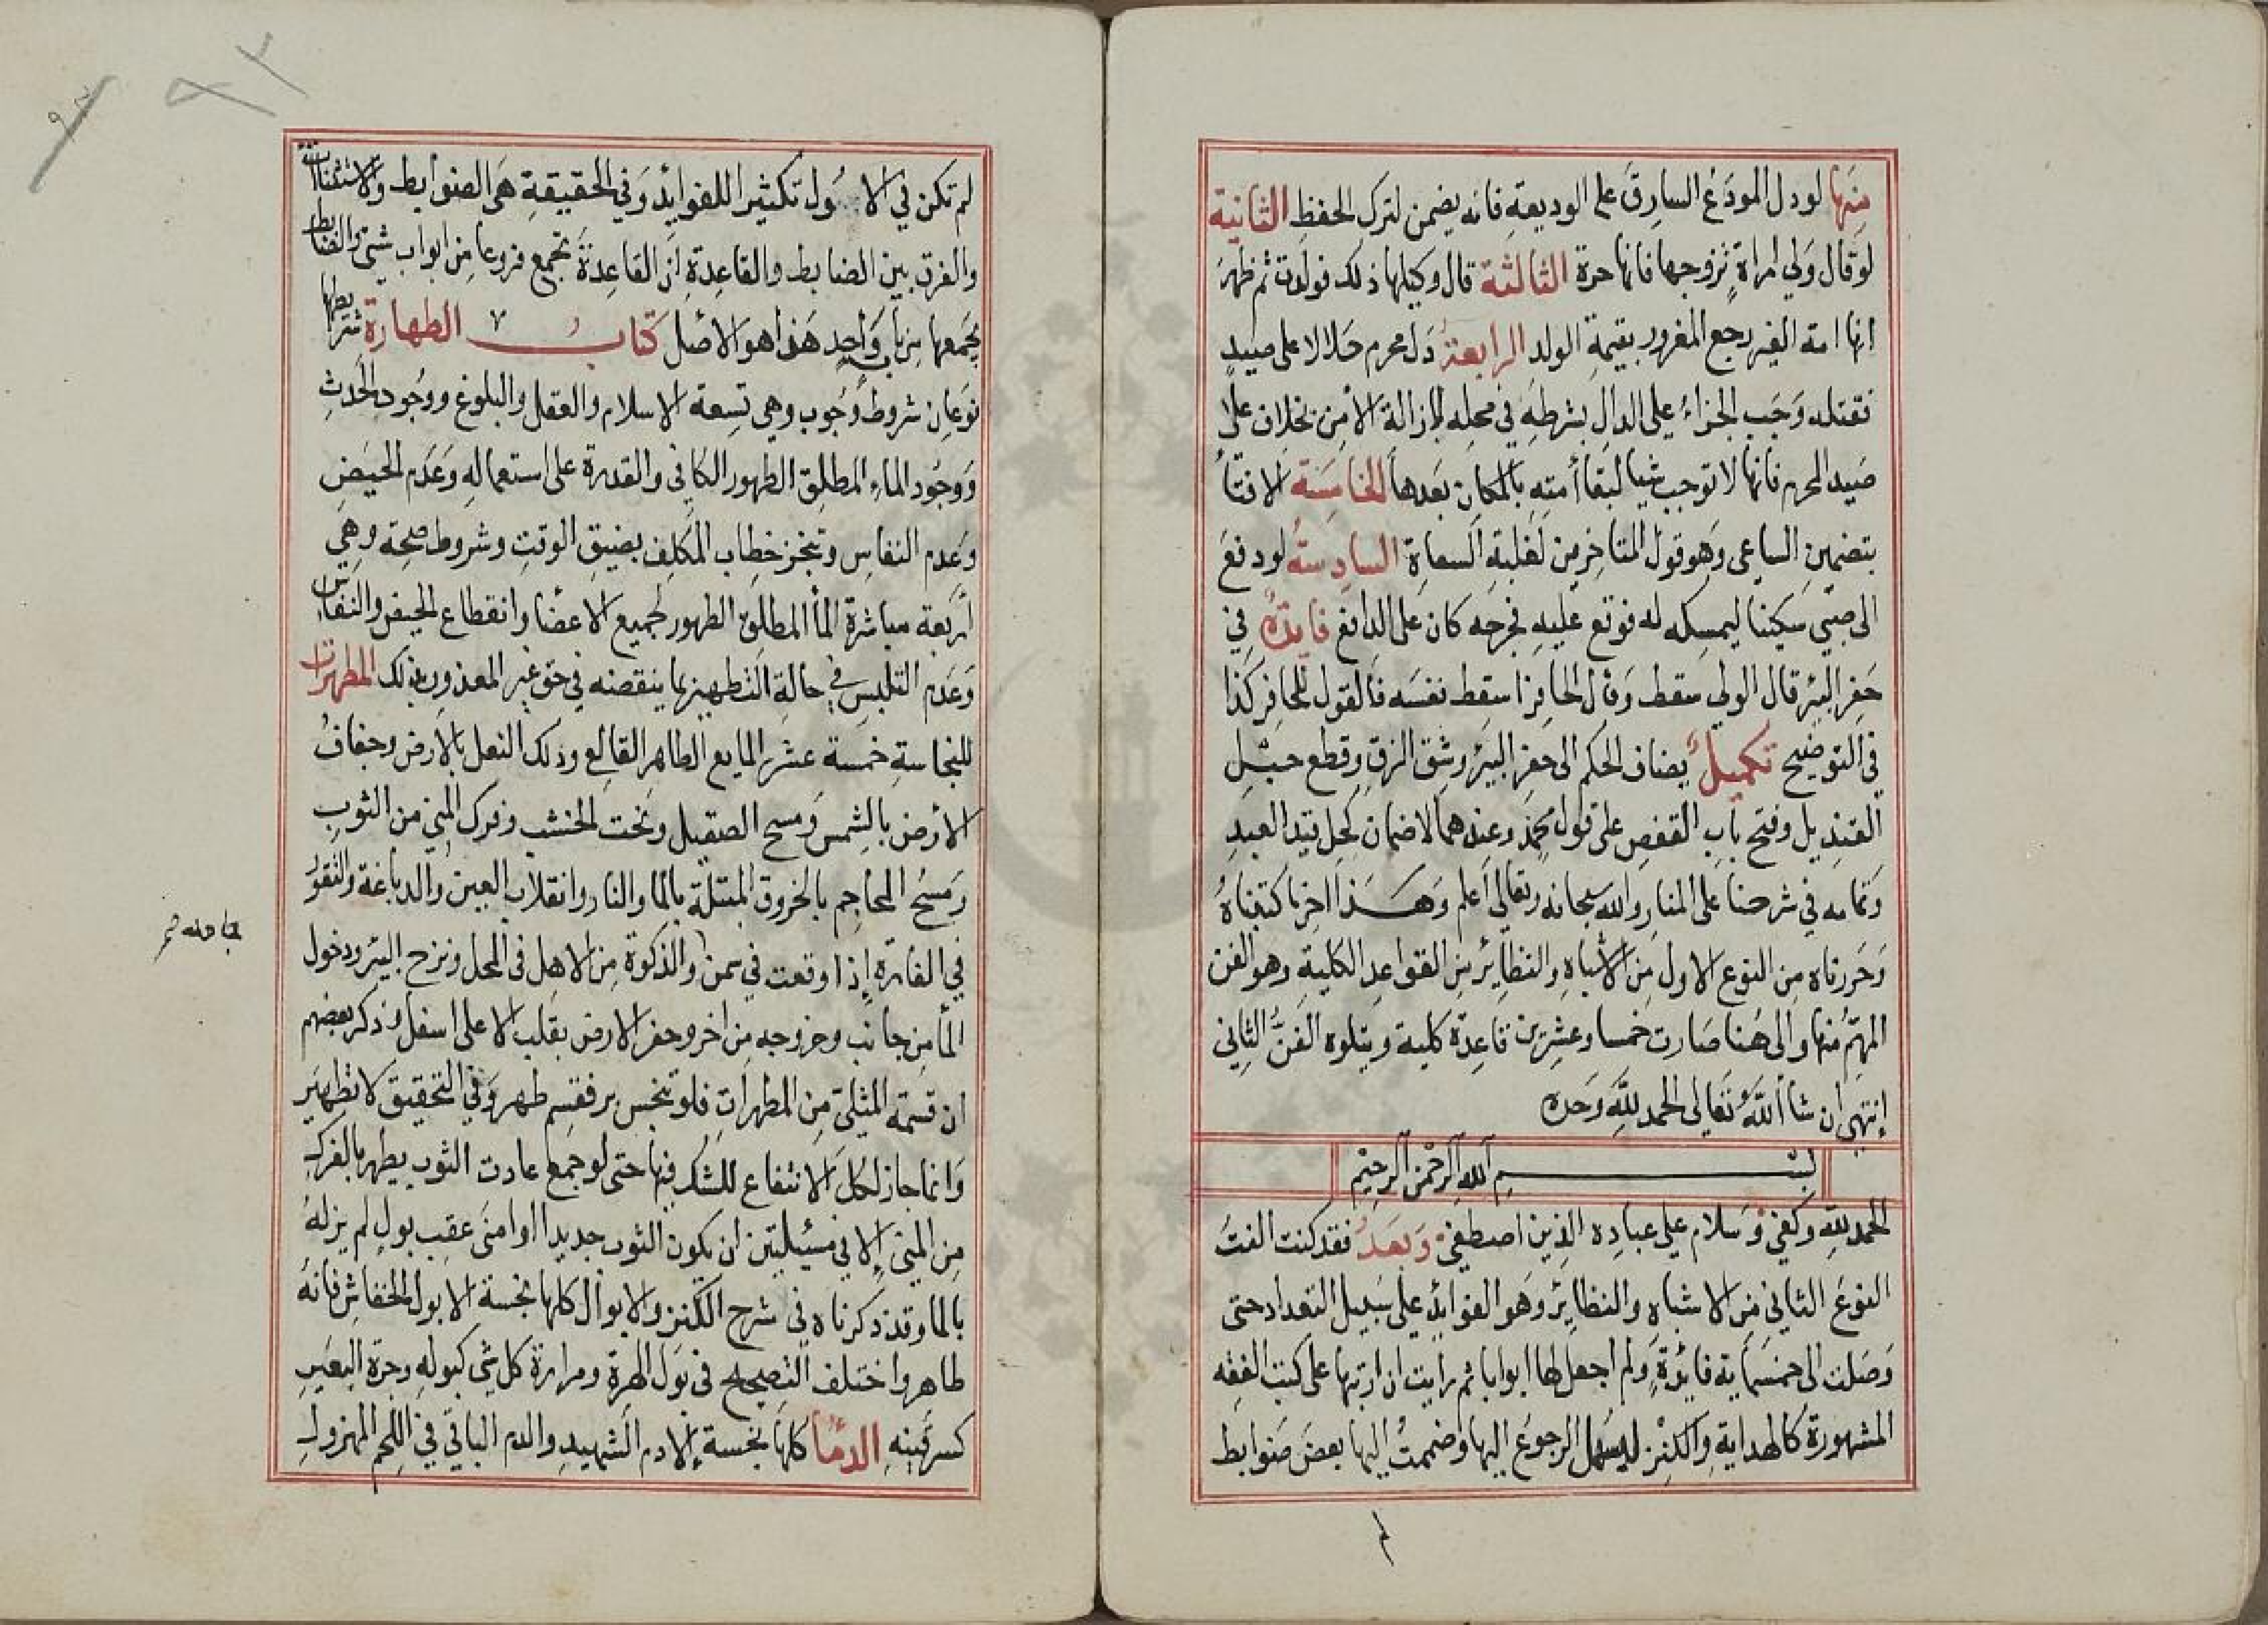 منها لو دل المودع السارق على الوديعة فانه يضمن لترك الحفظ الثانية
لو قال ولي امراة تزوجها فانها حرة الثالثة قال وكيلها ذلك فولدت ثم ظهر
انها امة الغير رجع المغرور بقيمة الولد الرابعة دل محرم حلالا على صيد
فقتله وجب الجزاء على الدال بشرطه في محله لازالة الأمن بخلاف
صيد الحرم فانها لا توجب شيا لبقاء أمنه بالمكان بعدها الخامسة الافتاء
بتضمين الساعى وهو قول المتاخرين لغلبة السعاة السادسة لو دفع
الى صبي سكينا ليمسكه له فوقع عليه فجرحه كان على الدافع فايدة في
حفر البئر قال الولي سقط وقال الحافر اسقط نفسه فالقول للحافر كذا
في التوضيح تكميل يضاف الحكم الى حفر البير وشق الزق وقطع حبل
القنديل وفتح باب القفص على قول محمد وعندهما لا ضمان كحل قيد العبد
وتمامه في شرحنا على المنار والله سبحانه وتعالى اعلم وهذا اخر ما كتبناه
وحررناه من النوع الاول من الاشباه والنظاير من القواعد الكلية وهو الفن
المهم منها والى هنا صارت خمسا وعشرين قاعدة كلية ويتلوه الفن الثاني
إنتهى ان شا الله تعالى الحمد لله وحده
بسم الله الرحمن الرحيم
الحمد لله وكفى وسلام على عباده الذين اصطفى وبعد فقد كنت الفت
النوع الثاني من الاشباه والنظاير وهو الفوايد على سبيل التعداد حتى
وصلت الى خمسماية فايدة ولم اجعل لها ابوابا ثم رايت ان ارتبها على كتب الفقه
المشهورة كالهداية والكنز ليسهل الرجوع اليها وضممت اليها بعض ضوابط
لم تكن في الاول تكثيرا للفوايد وفي الحقيقة هي الضوابط والاستثناات
والفرق بين الضابط والقاعدة ان القاعدة تجمع فروعا من ابواب شتى والضابط
يجمعها من باب واحد هذا هو الاصل كتاب الطهارة شرايطها
نوعان شروط وجوب وهي تسعة الاسلام والعقل والبلوغ ووجود الحدث
ووجود الماء المطلق الطهور الكافي والقدرة على استعماله وعدم الحيض
وعدم النفاس وتنجز خطاب المكلف بضيق الوقت وشروط صحة وهي
أربعة مباشرة الماء المطلق الطهور لجميع الاعضا وانقطاع الحيض والنفاس
وعدم التلبس في حالة التطهير بما ينقضه في حق غير المعذور بذلك المطهرات
للنجاسة خمسة عشر المايع الطاهر القالع ودلك النعل بالارض وجفاف
الأرض بالشمس ومسح الصقيل ونحت الخشب وفرك المني من الثوب
ومسح المحاجم بالخروق المبتلة بالما والنار وانقلاب العين والدباغة والتقور
في الفارة إذا وقعت في سمن والذكوة من الاهل في المحل ونزح البير ودخول
الماء من جانب وخروجه من اخر وحفر الارض بقلب الاعلى اسفل وذكر بعضهم
ان قسمة المثلي من المطهرات فلو تنجس بر فقسم طهر وفي التحقيق لا تطهير
وانما جاز لكل الانتفاع للشك فيها حتى لو جمع عادت الثوب يطهر بالفرك
من المني إلا في مسئلتين ان يكون الثوب جديدا او امنى عقب بول لم يزله
بالما وقد ذكرناه في شرح الكنز والابوال كلها نجسة الا بول الخفاش فانه
طاهر واختلف التصحيح في بول الهرة ومرارة كل شي كبوله وجرة البعير
كسرقينه الدما كلها نجسة إلا دم الشهيد والدم الباقي في اللحم المهزول